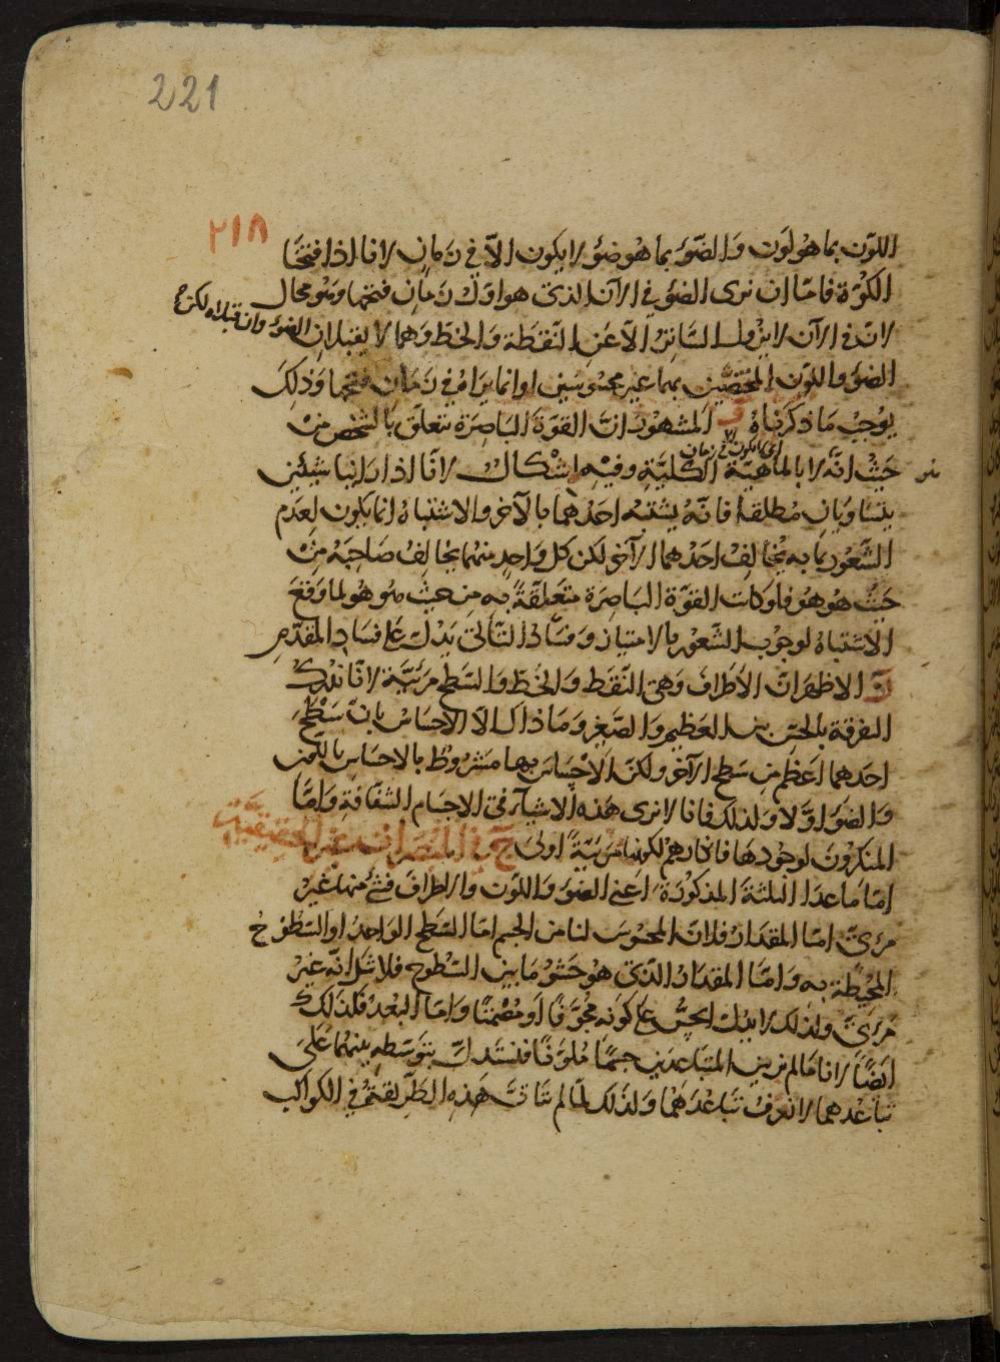 221
٢١٨
اللون بما هو لون والضوء بما هو ضوء لا يكون الا في زمان لانا اذا فتحنا
الكوة فاما ان نرى الضوء في الآن الذي هو اول زمان فتحها وهو محال
لانه في الآن لا يزول الساتر الا عن النقطة والخط وهما لا يقبلان الضوء وان قبلاه لكن
الضوء واللون المختصين بهما غير محسوسين او انما يرا في زمان فتحها وذلك
يوجب ما ذكرناه المشهور ان القوة الباصرة تتعلق بالشخص من
حيث انه لا بالماهية الكلية وفيه اشكال لانا اذا راينا شيئين
يتساويان مطلقا فانه يشتبه احدهما بالآخر والاشتباه انما يكون لعدم
الشعور بما به يخالف احدهما الآخر لكن كل واحد منهما يخالف صاحبه من
حيث هو هو فلو كانت القوة الباصرة متعلقة به من حيث هو هو لما وقع
الاشتباه لوجوب الشعور بالامتياز وفساد التالي يدل على فساد المقدم
الاظهر ان الاطراف وهي النقط والخط والسطح مرئية لانا ندرك
التفرقة بالحس بين العظيم والصغير وما ذاك الا الاحساس بان سطح
احدهما اعظم من سطح الآخر ولكن الاحساس بها مشروط بالاحساس باللون
والضوء اولا ولذلك فانا لا نرى هذه الاشياء في الاجسام الشفافة واما
المنكرون لوجودها فانكارهم لكونها مرئية اولى ج في المبصرات غير الحقيقية
اما ما عدا الثلثة المذكورة اعني الضوء واللون والاطراف فشئ منها غير
مرئي اما المقدار فلان المحسوس لنا من الجسم اما السطح الواحد او السطوح
المحيطة به واما المقدار الذي هو حشو ما بين السطوح فلا شك انه غير
مرئي ولذلك لا يدل الحس على كونه مجوفا او مصمتا واما البعد فكذلك
ايضا لانا ما لم نر بين المتباعدين جسما ملونا فنستدل بتوسطه بينهما على
تباعدهما لا نعرف تباعدهما ولذلك لما لم تتأت هذه الطريقة في الكواكب